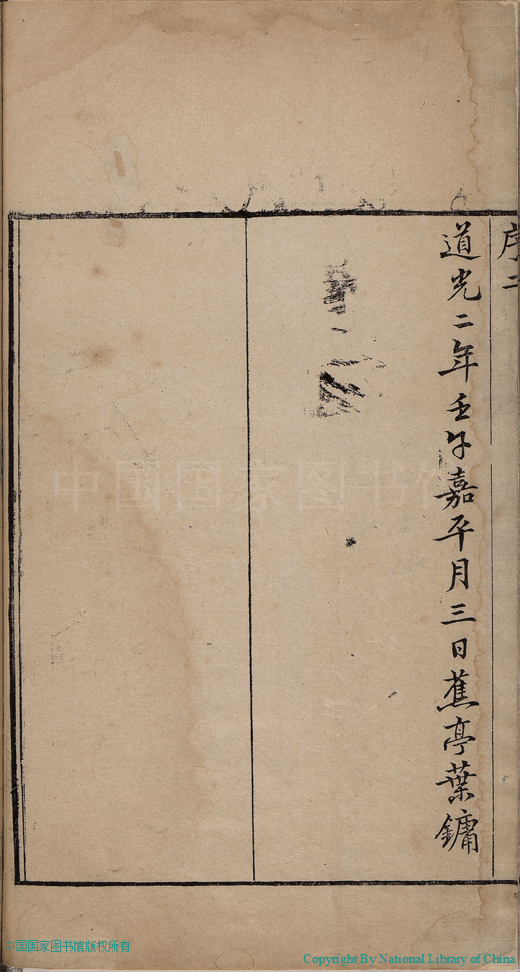 序二
道光二年壬午嘉平月三日蕉亭葉鏞
中国国家图书馆
中国国家图书馆版权所有
Copyright By National Library of China